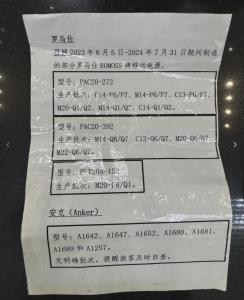 罗马仕
召回 2023 年 6 月 5 日-2024 年 7 月 31 日期间制造
的部分罗马仕 ROMOSS 牌移动电源。
型号：PAC20-272
生产批次：C14-P6/P7、M14-P6/P7、C13-P6/P7、
M20-Q1/Q2、M14-Q1/Q2、C14-Q1/Q2。
型号：PAC20-392
生产批次：M14-Q6/Q7 C13-Q6/Q7、M20-Q6/Q7
M22-Q6/Q7。
型号：PLT20A-152
生产批次：M20-18/Q1。
安克（Anker）
型号：A1642、A1647、A1652、A1680、A1681、
A1689 和 A1257。
无明确批次，提醒旅客及时自查。